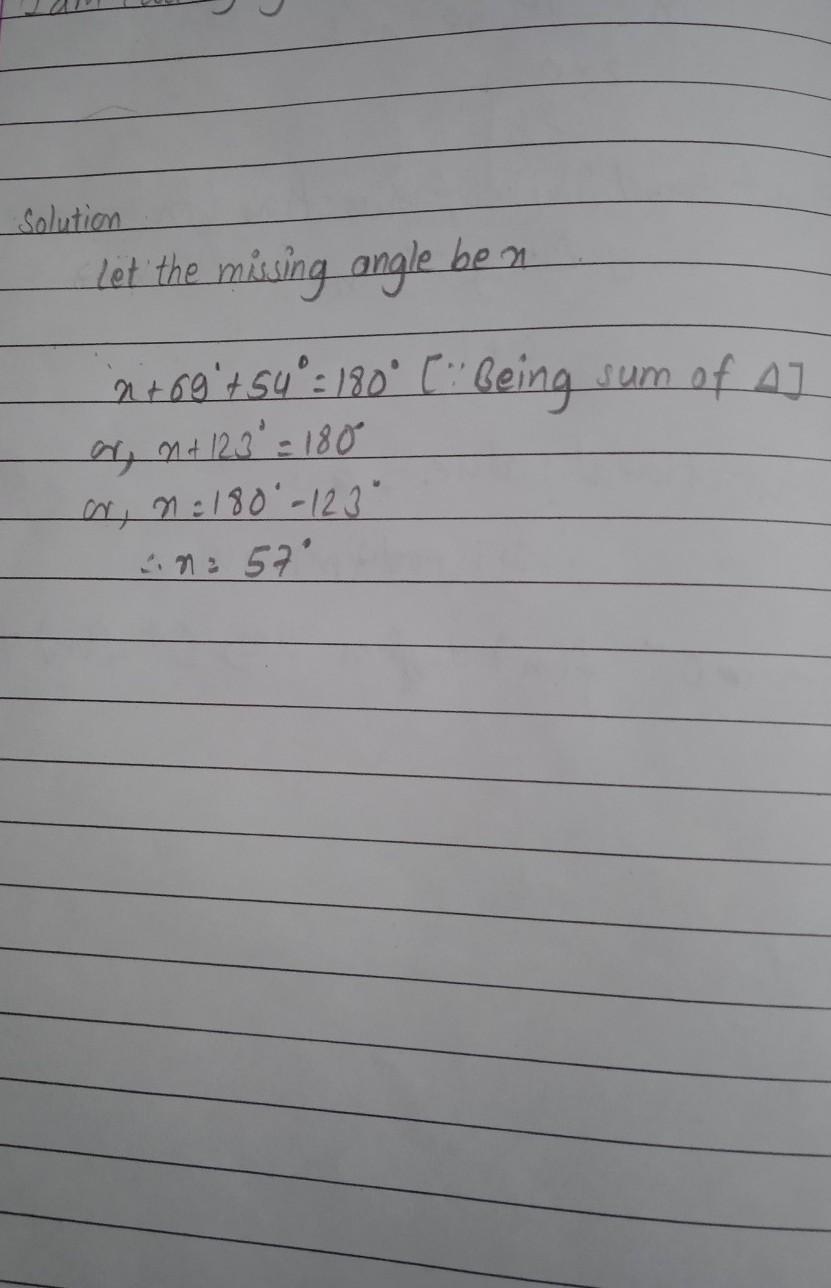 Solution
let the missing angle be x
x + 69° + 54° = 180° [∵ Being sum of Δ]
or, x + 123° = 180°
or, x = 180° - 123°
∴ x = 57°